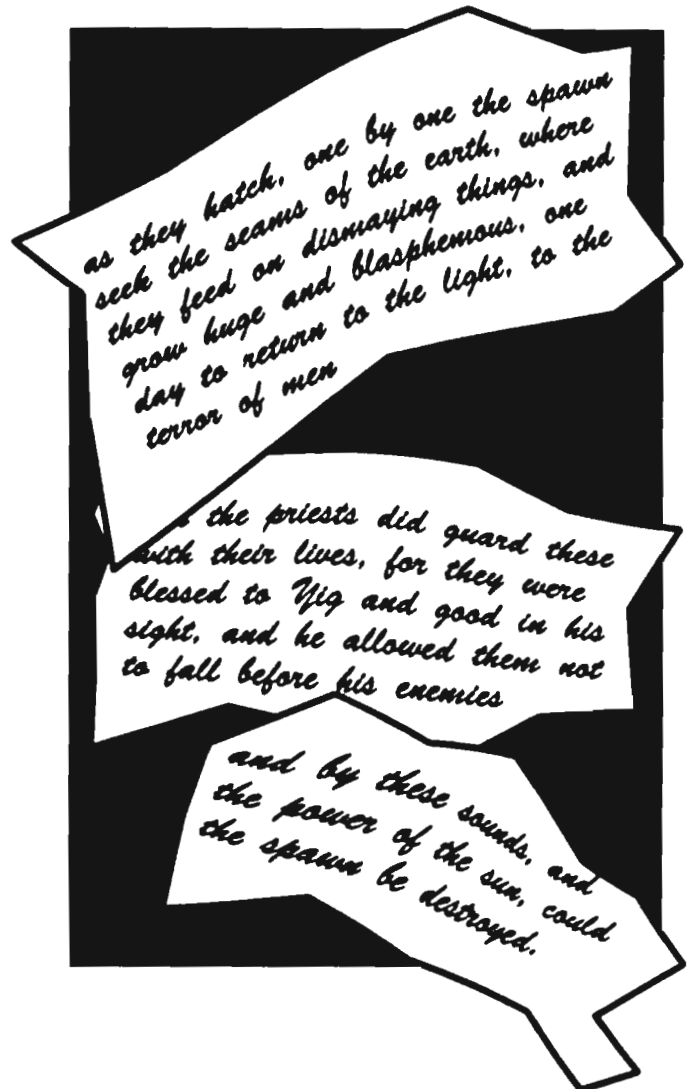 as they hatch, one by one the spawn
seek the seams of the earth, where
they feed on dismaying things, and
grow huge and blasphemous, one
day to return to the light, to the
terror of men
the priests did guard these
with their lives, for they were
blessed to Yig and good in his
sight, and he allowed them not
to fall before his enemies
and by these sounds, and
the power of the sun, could
the spawn be destroyed.